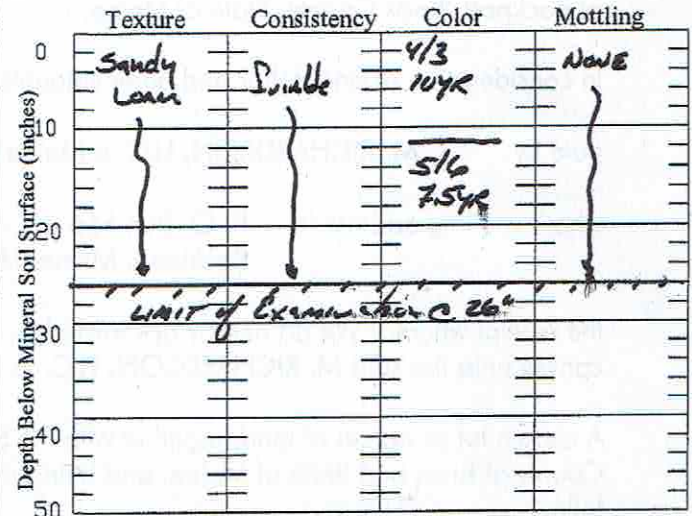 Texture Consistency Color Mottling
Depth Below Mineral Soil Surface (inches)
0
10
20
30
40
50
Sandy
Loam
Friable
4/3
10YR
5/6
7.5YR
NONE
LIMIT of Examination @ 26"